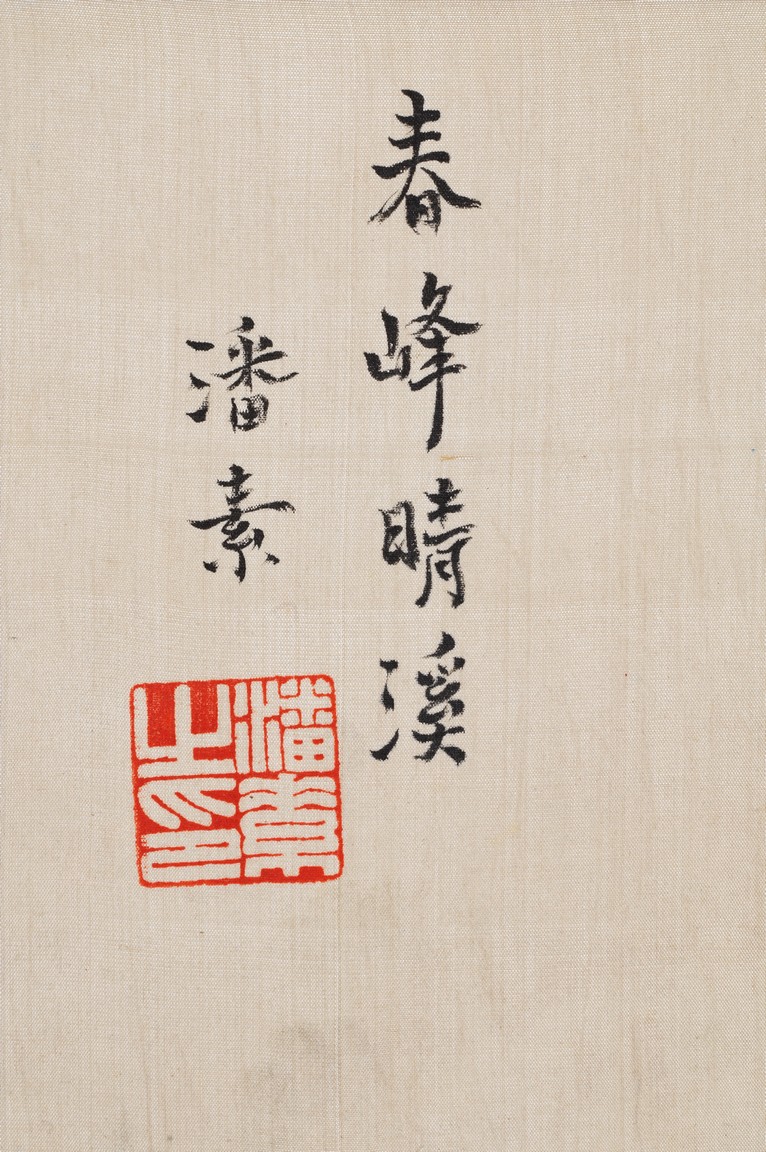 春峰晴溪
潘素
潘素之印